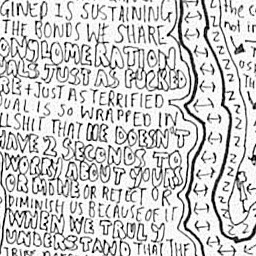 GINED IS SUSTAINING
THE BONDS WE SHARE
ONGLOMERATION
ALS JUST AS FUCKED
RE + JUST AS TERRIFIED
UAL IS SO WRAPPED IN
LLSHIT THAT HE DOESN'T
HAVE 2 SECONDS TO
WORRY ABOUT YOURS
OR MINE OR REJECT OR
DIMINISH US BECAUSE OF IT
WHEN WE TRULY
UNDERSTAND THAT THE
the c
not in